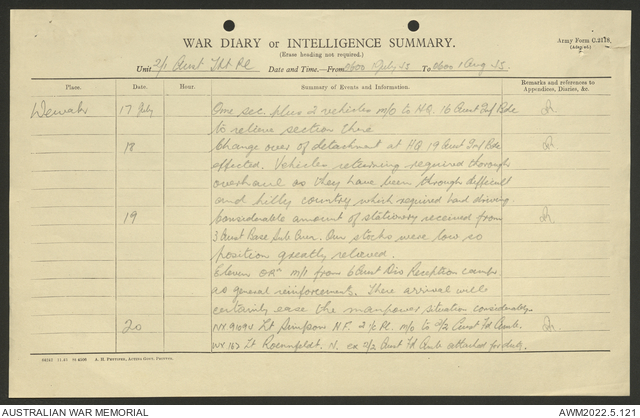 WAR DIARY or INTELLIGENCE SUMMARY.
(Erase heading not required).
Army Form C.2118.
(Adapted)
Unit 2/1 Aust Tkt Pl Date and Time—From 0600 1 July 45 To 0600 1 Aug 45.
Place. Date. Hour. Summary of Events and Information. Remarks and references to Appendices, Diaries, &c.
Wewak 17 July One sec. plus 2 vehicles m/o to HQ. 16 Aust Inf Bde
to relieve section there
18 Change over of detachment at HQ 19 Aust Inf Bde
effected. Vehicles returning required thorough
overhaul as they have been through difficult
and hilly country which required hard driving
19 Considerable amount of stationery received from
3 Aust Base Sub Our stocks were low so
position greatly relieved.
Eleven ORs m/i from 6 Aust Div Reception camp
as general reinforcements. There arrival will
certainly ease the manpower situation considerably.
20 Lt Simpson N.F. 2 i/c Pl. m/o to 2/2 Aust Fd Amb.
Lt N. ex 2/2 Aust Fd Amb attached for duty.
A. H. Pettifer, Acting Govt. Printer.
AUSTRALIAN WAR MEMORIAL
AWM2022.5.121